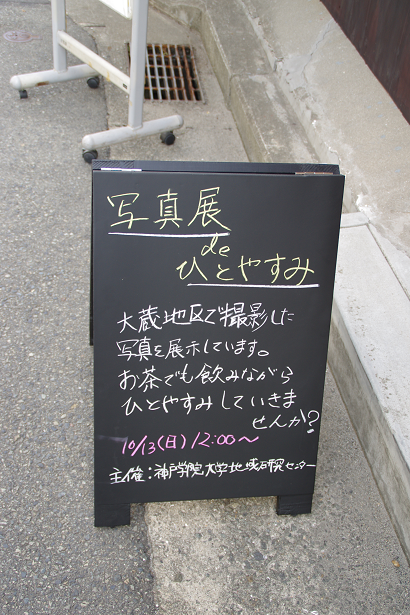 写真展
de
ひとやすみ
大蔵地区で撮影した
写真を展示しています。
お茶でも飲みながら
ひとやすみしていきま
せんか?
10/13(日) 12:00～
主催:神戸学院大学地域研究センター